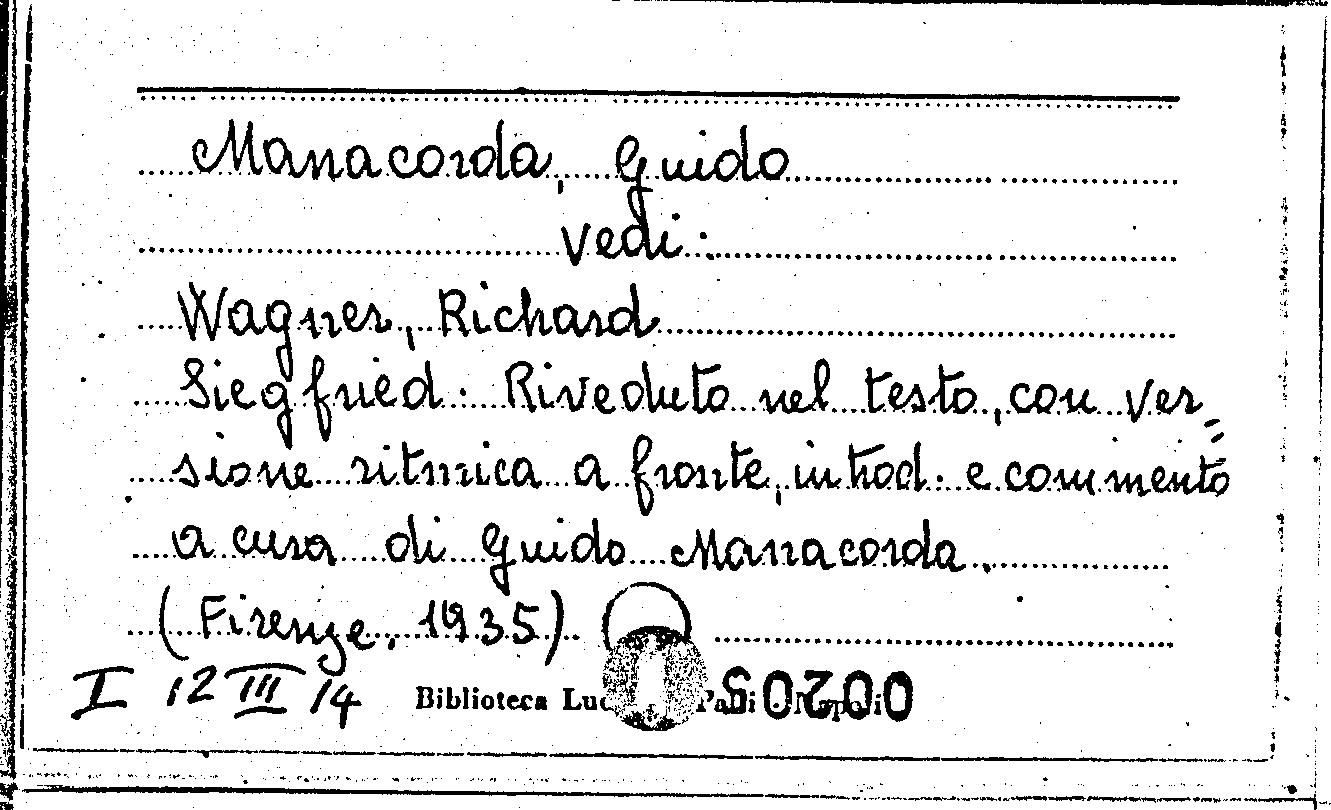 Manacorda, Guido
vedi:
Wagner, Richard
Siegfried. Riveduto nel testo, con ver=
sione ritmica a fronte, introd. e commento
a cura di Guido Manacorda.
(Firenze, 1935)
I 12 III 14 Biblioteca